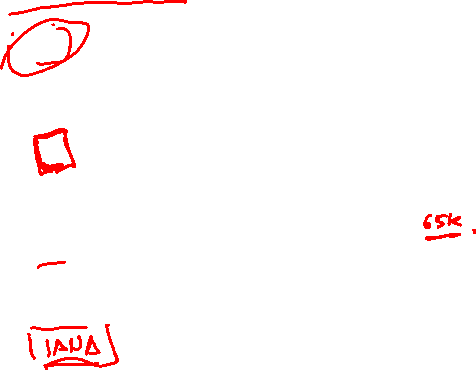 65K
IANA